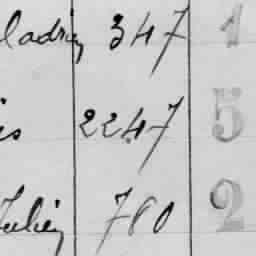 ladriz 347 1
is 2247 5
Julien 780 2